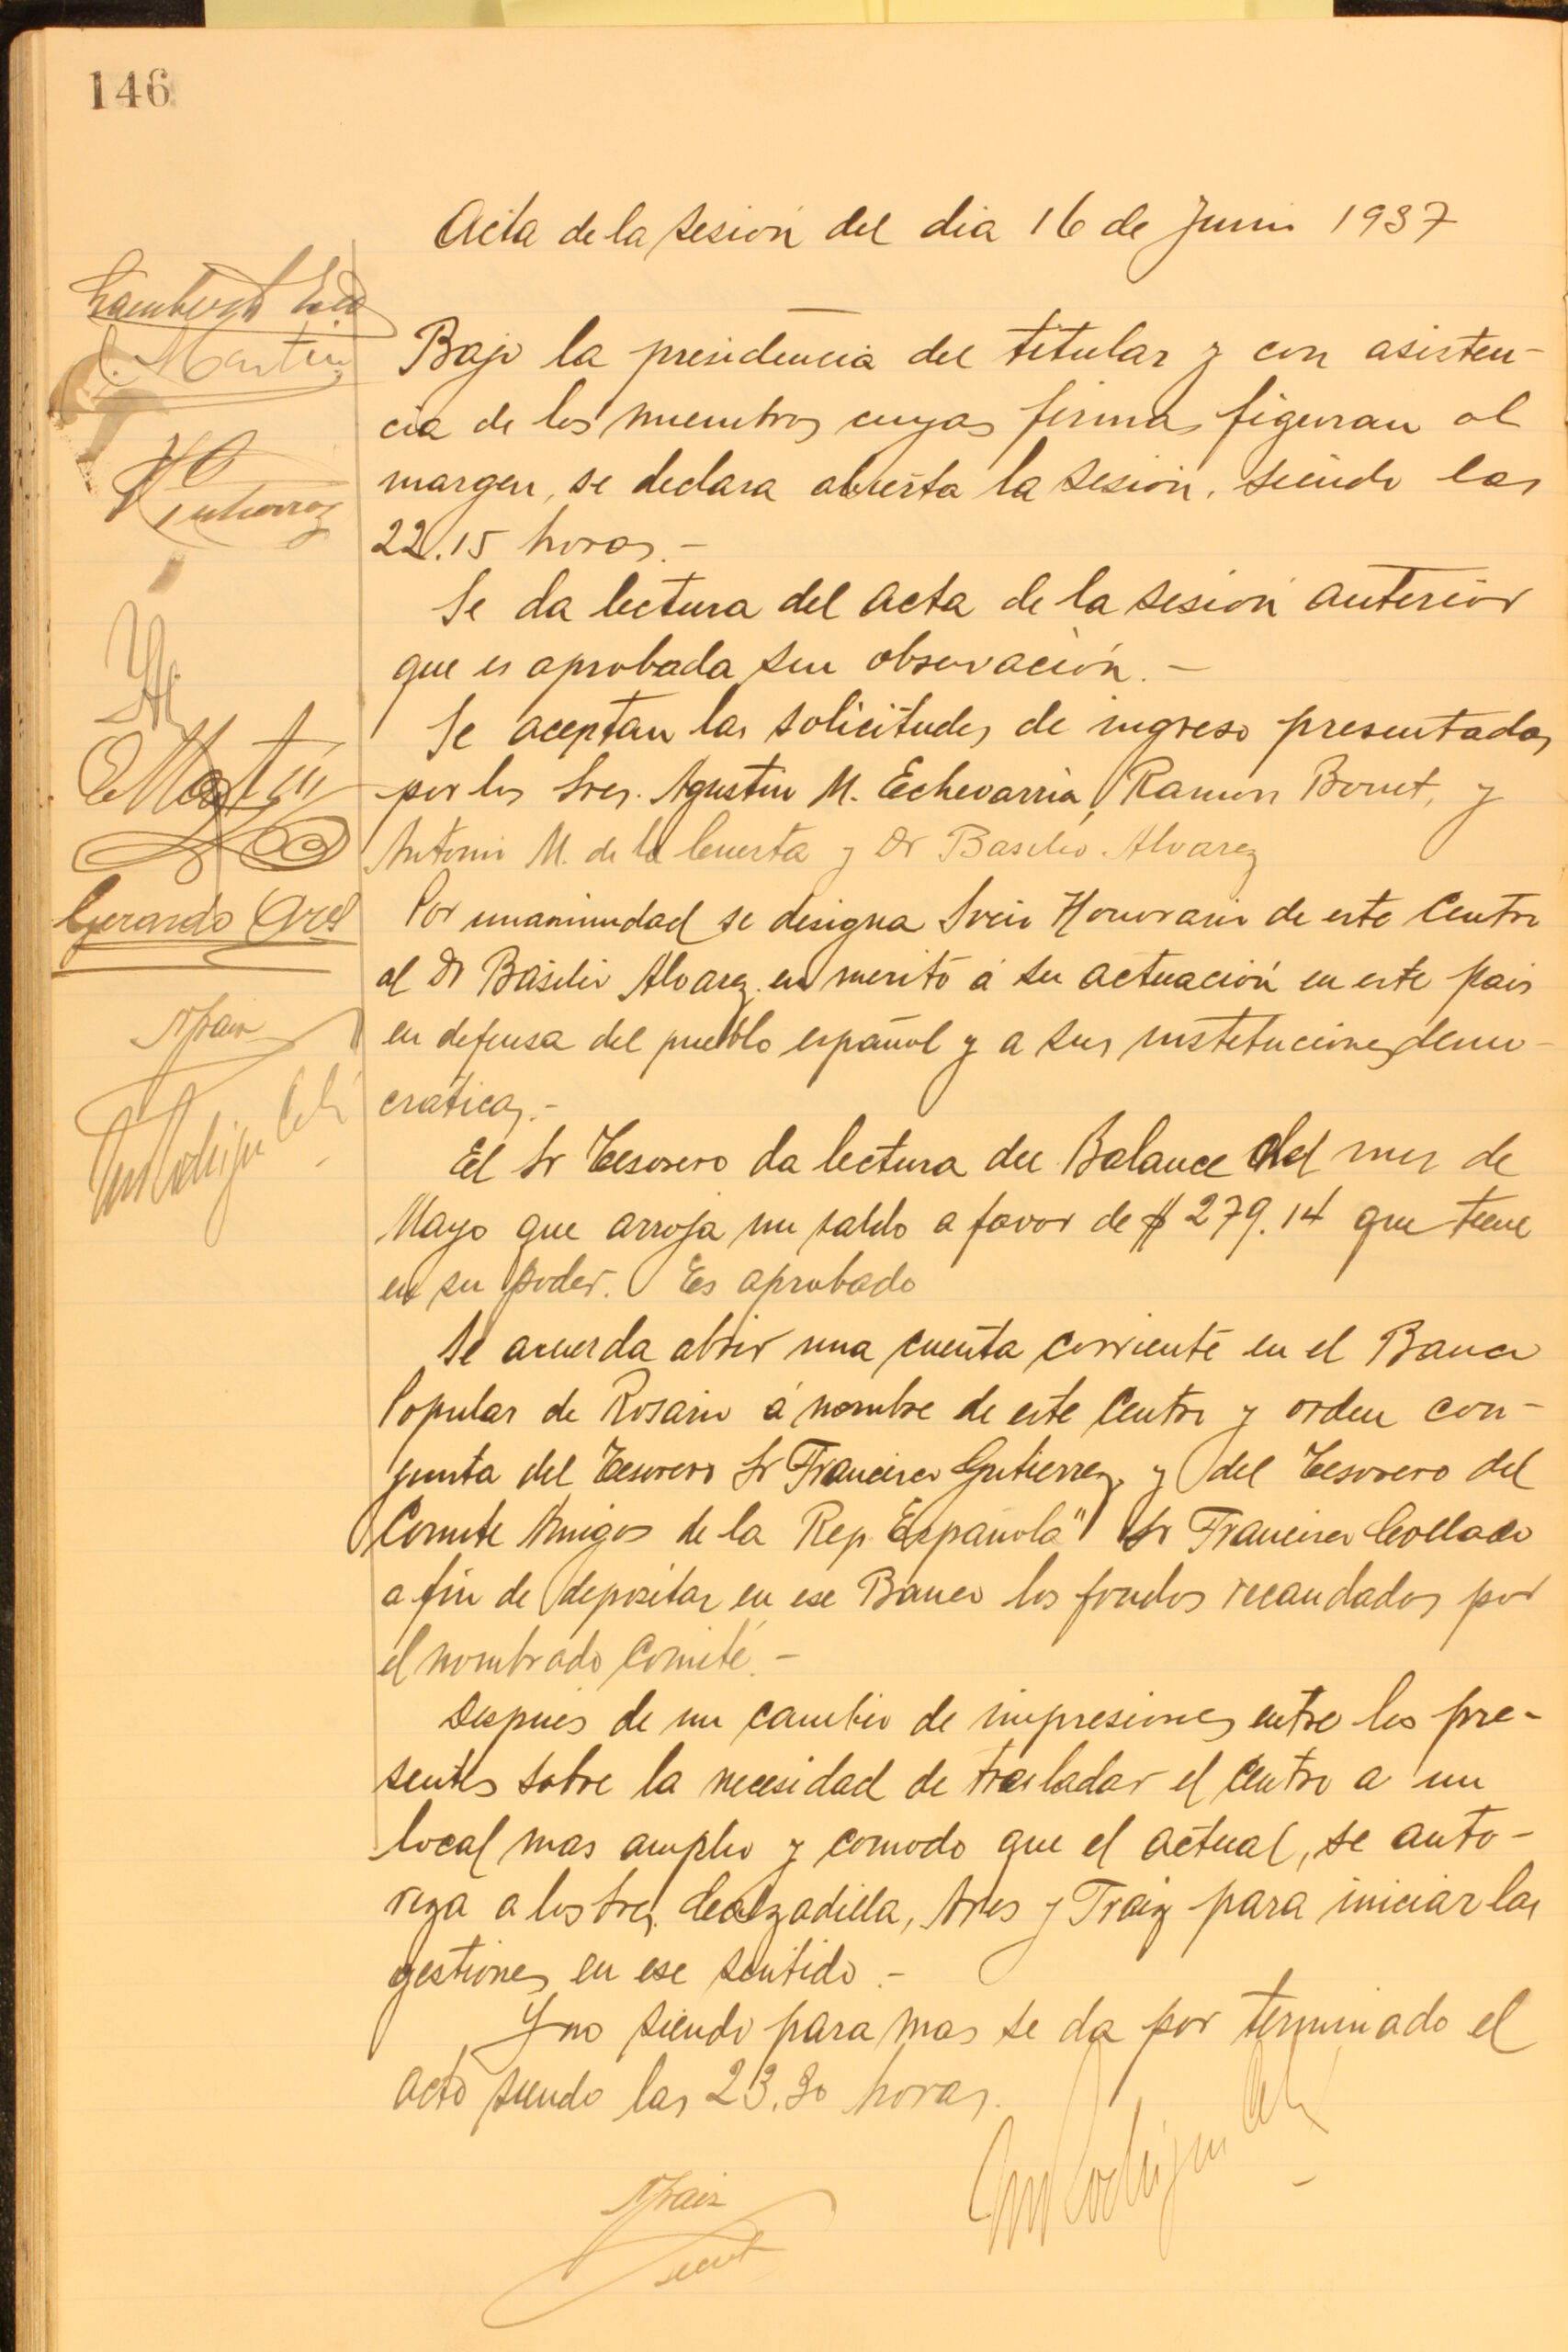 146
Acta de la sesión del dia 16 de Junio 1937
Bajo la presidencia del titular y con asisten-
cia de los miembros cuyas firmas figuran al
margen, se declara abierta la sesión, siendo las
22.15 horas.-
Se da lectura del acta de la sesión anterior
que es aprobada sin observación.-
Se aceptan las solicitudes de ingreso presentadas
por los Sres. Agustin M. Echevarria, Ramon Bonet, y
Antonio M. de la Cuesta y Dr Basilio Alvarez
Por unanimidad se designa Socio Honorario de este Centro
al Dr Basilio Alvarez en merito á su actuación en este pais
en defensa del pueblo español y a sus instituciones demo-
craticas.-
El Sr Tesorero da lectura del Balance del mes de
Mayo que arroja un saldo a favor de $ 279.14 que tiene
en su poder. Es aprobado
Se acuerda abrir una cuenta corriente en el Banco
Popular de Rosario á nombre de este Centro y orden con-
junta del Tesorero Sr Francisco Gutierrez, y del Tesorero del
Comite Amigos de la Rep. Española" Sr Francisco Collado
a fin de depositar en ese Banco los fondos recaudados por
el nombrado Comité.-
Despues de un cambio de impresiones entre los pre-
sentes sobre la necesidad de trasladar el Centro a un
local mas amplio y comodo que el actual, se auto-
riza a los Sres. Calzadilla, Ares y Traiz para iniciar las
gestiones en ese sentido.-
Y no siendo para mas se da por terminado el
acto siendo las 23.30 horas.
C. Martin
Gutierrez
E Martin
Gerardo Ares